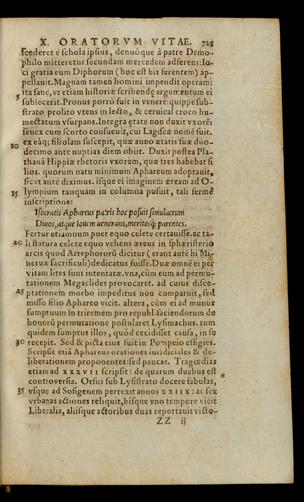 X. ORATORVM VITAE. 725
scederet è schola ipsius, denuóque à patre Demo-
philo mitteretur secundam mercedem adferens: Io-
ci gratia eum Diphorum (hoc est bis ferentem) ap-
pellauit. Magnam tamen homini impendit operam:
ita sanè, vt etiam historiæ scribendę argumentum ei
5 subiecerit. Pronus porrò fuit in venere: quippe sub-
strato prolito vtens in lecto, & ceruical croco hu-
mectatum vsurpans. Integra ętate non duxit vxorē:
senex cum scorto consueuit, cui Lagiscæ nomē fuit.
ex eáq; filiolam suscepit, quæ anno ætatis suæ duo-
10 decimo ante nuptias diem obiit. Duxit postea Pla-
thanā Hippiæ rhetoris vxorem, quæ tres habebat fi
lios. quorum natu minimum Aphareum adoptauit,
sicut antè diximus. isque ei imaginem æream ad O-
15 lympium tanquam in columna posuit, tali fermè
inscriptione:
Isocratis Aphareus patris hoc posuit simulacrum
Diuos, atque Iouem venerans, meritósq; parentes.
Fertur etiamnum puer equo celete certauisse. ac ta-
20 li statura celete equo vehens æreus in sphæristerio
arcis quod Arrephororū dicitur (erant autē hi Mi-
neruæ sacrificuli) dedicatus fuisse. Duæ omnē ei per
vitam lites sunt intentatæ. vna, cùm eum ad permu-
tationem Megaclides prouocaret. ad cuius disce-
25 ptationem morbo impeditus non comparuit, sed
misso filio Aphareo vicit. altera, cùm ei ad munus
sumptuum in triremem pro republ. faciendorum de
honorū permutatione postularet Lysimachus. tum
quidem sumptus illos, quòd cecidisset causa, in se
30 recepit. Sed & picta eius fuit in Pompeio effigies.
Scripsit etiā Aphareus orationes iuridiciales & de-
liberationem proponentes: sed paucas. Tragœdias
etiam ad XXXVII scripsit: de quarum duabus est
controuersia. Orsus sub Lysistrato docere fabulas,
35 vsque ad Sosigenem perrexit annos XXIIX: ac sex
vrbanas actiones reliquit, bisque vno tempore vicit
Liberalia, aliisque actoribus duas reportauit victo-
ZZ ij